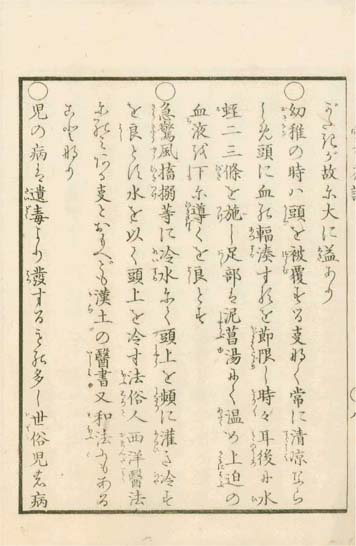 ざるが故に大に益あり
○幼稚の時ハ頭を被覆する事なく常に清凉ならしめ頭に血の輻湊するを節限し時々耳後に水
蛭二三條を施し足部は泥菖湯にて温め上迫の
血液を下に導くを良とす
○急驚風搐搦等に冷水にて頭上を頻に灌ぎ冷す
を良とす水を以く頭上を冷す法俗人西洋醫法
にのミある事とおもへども漢土の醫書又和法にもある
こと那り
○児の病は遺毒より發するもの多し世俗児の病